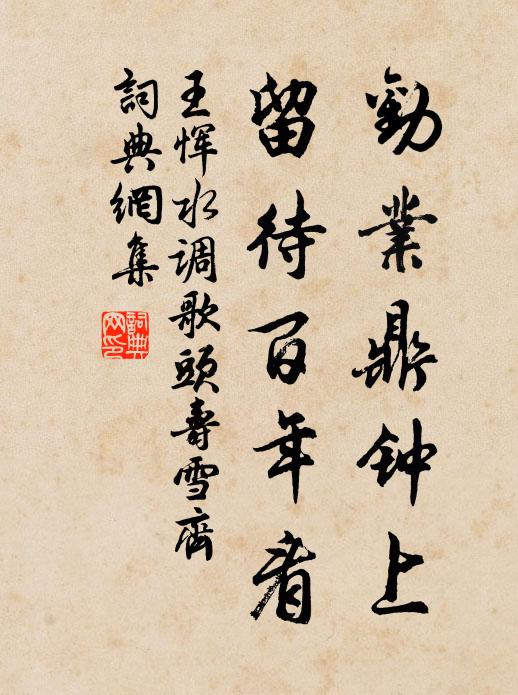 勳業鼎钟上
留待百年看
王恽水调歌頭壽雪齋
詞典網集
詞典网印